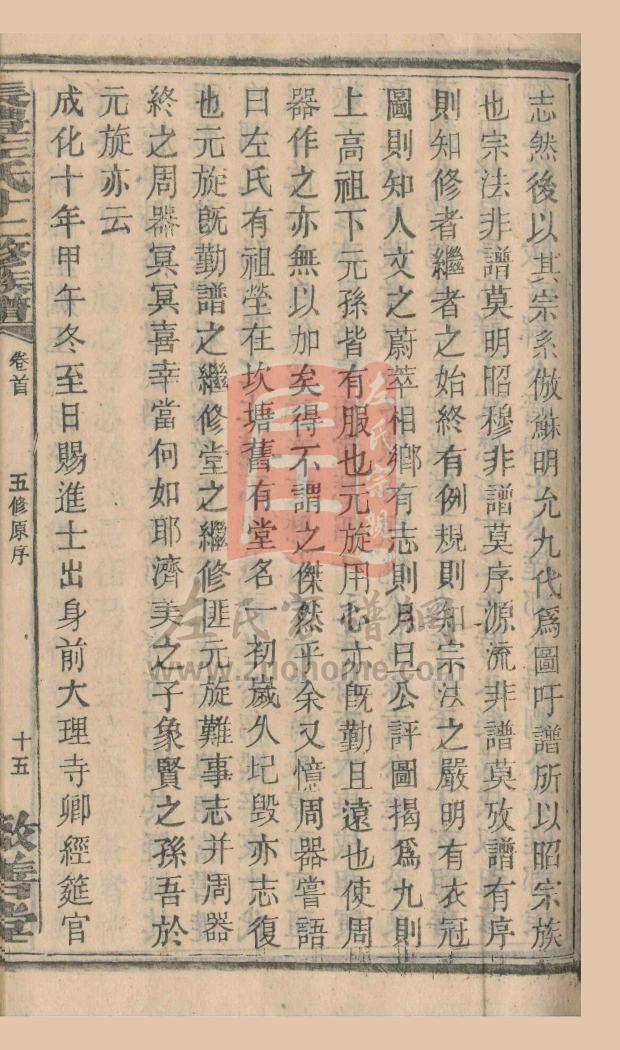 志然後以其宗系倣蘇明允九代爲圖吁譜所以昭宗族
也宗法非譜莫明昭穆非譜莫序源流非譜莫攷譜有序
則知修者繼者之始終有例規則知宗法之嚴明有衣冠
圖則知人文之蔚萃相鄉有志則月旦公評圖揭爲九則
上高祖下元孫皆有服也元旋用心亦旣勤且遠也使周
器作之亦無以加矣得不謂之傑然乎余又憶周器嘗語
曰左氏有祖塋在坎塘舊有堂名一初歲久圮毀亦志復
也元旋旣勤譜之繼修堂之繼修匪元旋難事志并周器
終之周器冥冥喜幸當何如耶濟美之子象賢之孫吾於
元旋亦云
成化十年甲午冬至日賜進士出身前大理寺卿經筵官
左氏十二修族譜
卷首
五修原序
十五
敦善堂
左氏宗親
左氏家譜網
www.zuohome.com